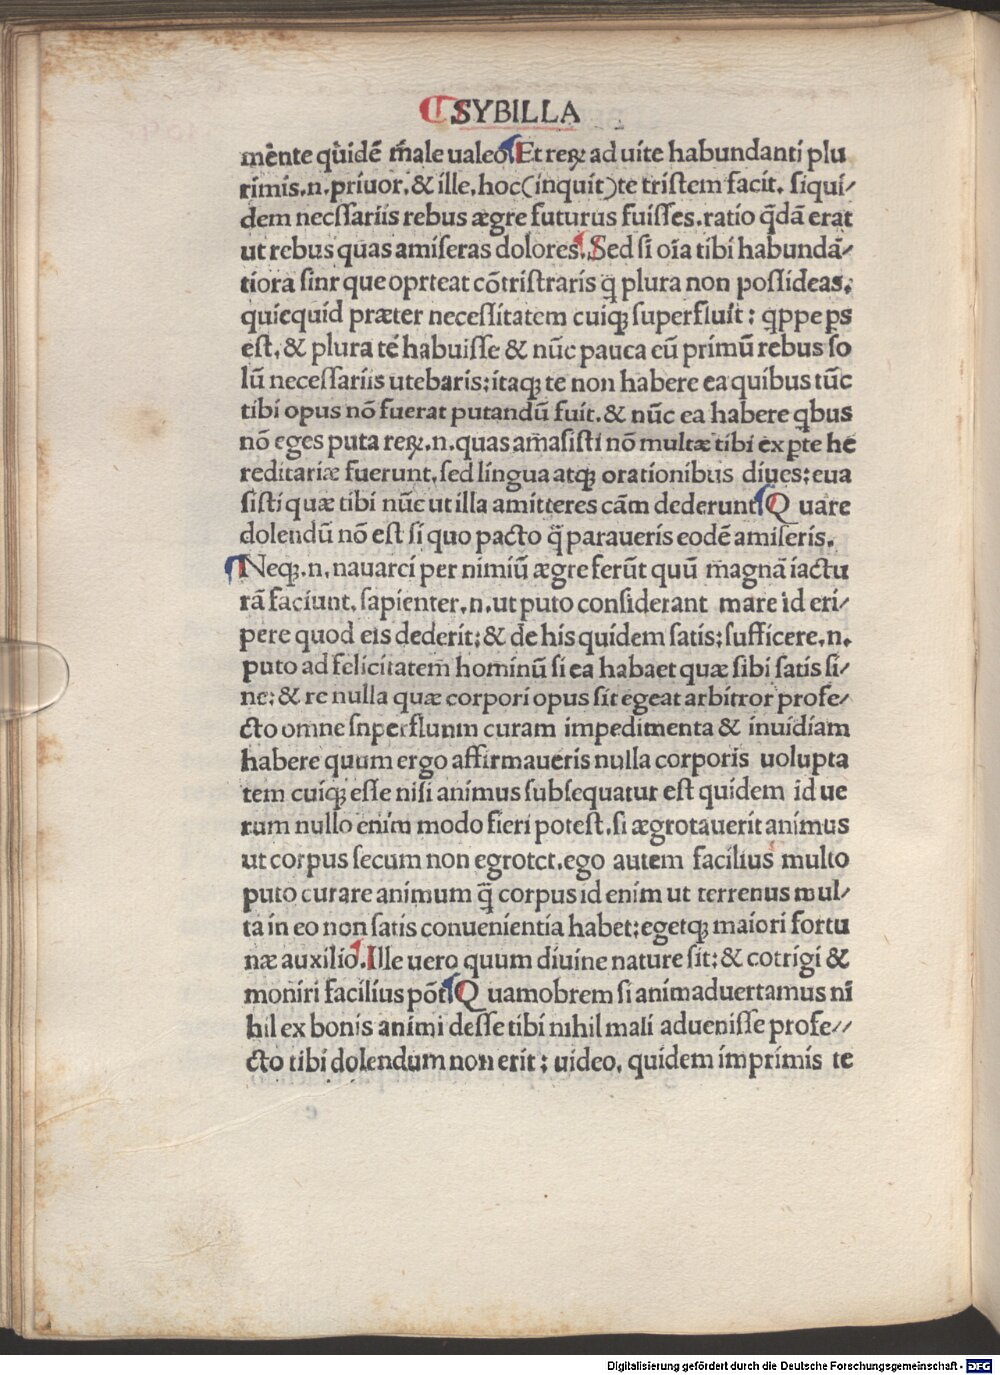 SYBILLA
mẽnte qͥidẽ m̃ale ualeo. Et reꝝ ad uite habundanti plu
rimis.n.priuor.& ille.hoc(inquit)te tristem facit. siqui⸗
dem necſſariis rebus ægre futurus fuiſſes.ratio q̃dã erat
ut rebus quas amiſeras dolores. Sed ſi oĩa tibi habundã⸗
tiora ſinr que oprteat cõtriſtraris ꝙ plura non poſſideas.
quicquid præter neceſſitatem cuiqꝫ ſuperfluit: qͥppe p̱s
eſt.& plura te habuiſſe & nũc pauca eũ primũ rebus ſo
lũ neceſſariis utebaris:itaqꝫ te non habere ea quibus tũc
tibi opus nõ fuerat putandũ fuit.& nũc ea habere qͥbus
nõ eges puta reꝝ.n.quas amaſiſti nõ multæ tibi ex ꝑte he
reditariæ fuerunt.ſed lingua atqꝫ orationibus diues:eua
ſiſti quæ tibi nũc ut illa amitteres cãm dederunt. Q uare
dolendũ nõ eſt ſi quo pacto q̃ paraueris eodẽ amiſeris.
Neqꝫ.n.nauarci per nimiũ ægre ferũt quũ magnã iactu
rã faciunt.ſapienter.n.ut puto conſiderant mare id eri⸗
pere quod eis dederit:& de his quidem ſatis:ſufficere.n.
puto ad felicitatem hominũ ſi ea habaet quæ ſibi ſatis ſi⸗
ne:& re nulla quæ corpori opus ſit egeat arbitror profe⸗
cto omne ſnperflunm curam impedimenta & inuidiam
habere quum ergo affirmaueris nulla corporis uolupta
tem cuiqꝫ eſſe niſi animus ſubſequatur eſt quidem id ue
rum nullo enim modo fieri poteſt.ſi ægrotauerit animus
ut corpus ſecum non egrotct.ego autem facilius multo
puto curare animum q̃ corpus id enim ut terrenus mul⸗
ta in eo non ſatis conuenientia habet:egetqꝫ maiori fortu
næ auxilio. Ille uero quum diuine nature ſit:& cotrigi &
moniri facilius põt. Q uamobrem ſi animaduertamus ni
hil ex bonis animi deſſe tibi nihil mali adueniſſe profe⸗
cto tibi dolendum non erit: uideo. quidem imprimis te
Digitalisierung gefördert durch die Deutsche Forschungsgemeinschaft - DFG